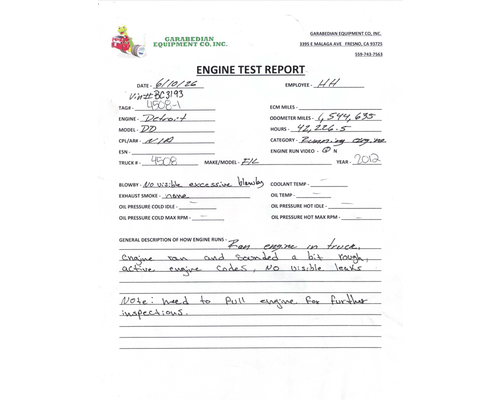 GARABEDIAN
EQUIPMENT CO, INC.
GARABEDIAN EQUIPMENT CO, INC.
3395 E MALAGA AVE FRESNO, CA 93725
559-743-7563
ENGINE TEST REPORT
DATE - 6/10/26 EMPLOYEE - HH
Vin# BC3193
TAG# - 4508-1 ECM MILES -
ENGINE - Detroit ODOMETER MILES - 1,544,635
MODEL - DD HOURS - 42,226.5
CPL/AR# - N/A CATEGORY - Running engine
ESN - ENGINE RUN VIDEO - Y N
TRUCK # - 4508 MAKE/MODEL - F/L YEAR - 2012
BLOWBY - No visible excessive blowby COOLANT TEMP - —
EXHAUST SMOKE - none OIL TEMP - —
OIL PRESSURE COLD IDLE - — OIL PRESSURE HOT IDLE - —
OIL PRESSURE COLD MAX RPM - — OIL PRESSURE HOT MAX RPM - —
GENERAL DESCRIPTION OF HOW ENGINE RUNS - Ran engine in truck,
engine ran and sounded a bit rough,
active engine codes, NO visible leaks
Note: need to pull engine for further
inspections.